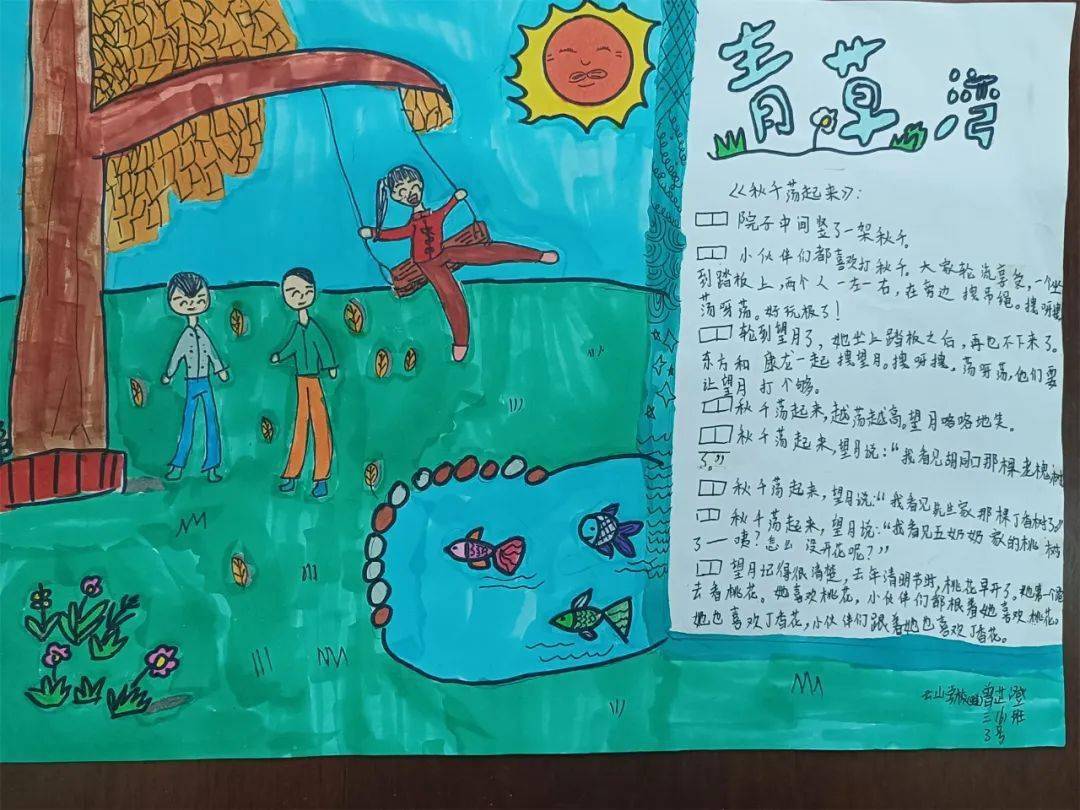 青草湾
《秋千荡起来》:
院子中间竖了一架秋千。
小伙伴们都喜欢打秋千。大家轮流享受,一个坐
到踏板上,两个人一左一右,在旁边 搜吊绳。搜呀搜
荡呀荡。好玩极了!
轮到望月了,她坐上踏板之后,再也不下来了。
东方和 康龙一起 搜望月。搜呀搜,荡呀荡,他们要
让望月 打个够。
秋千荡起来,越荡越高。望月咯咯地笑。
秋千荡起来,望月说:“我看见胡 那棵老槐树
了。”
秋千荡起来,望月说:“我看见 生家那棵丁香树了。”
秋千荡起来,望月说:“我看见五奶奶家的桃 树
了一咦?怎么 没开花呢?”
望月记得很清楚,去年清明节时,桃花早开了。她第一个
去看桃花。她喜欢桃花,小伙伴们都跟着她喜欢桃花。
她也喜欢丁香花,小伙伴们跟着她也喜欢丁香花。
云山 曾芷澄
三 班
3号